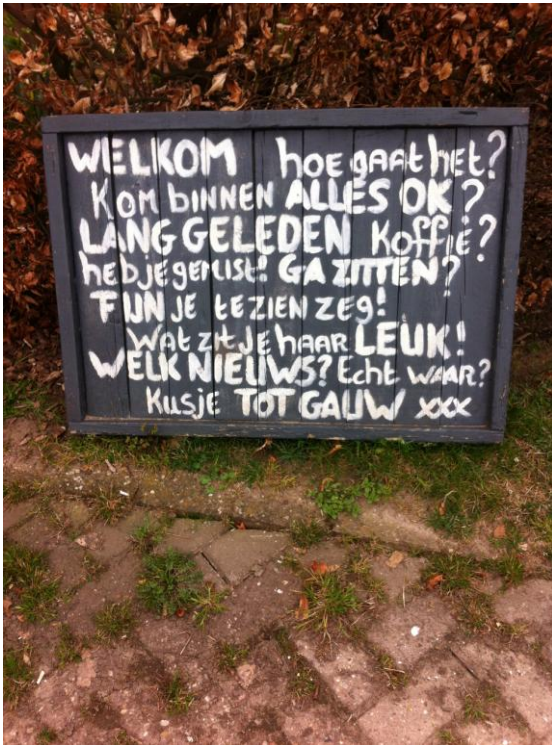 WELKOM hoe gaat het?
Kom binnen ALLES OK?
LANG GELEDEN Koffie?
heb je gemist! GA ZITTEN?
FIJN JE te zien zeg!
Wat zit je haar LEUK!
WELK NIEUWS? Echt waar?
Kusje TOT GAUW xxx